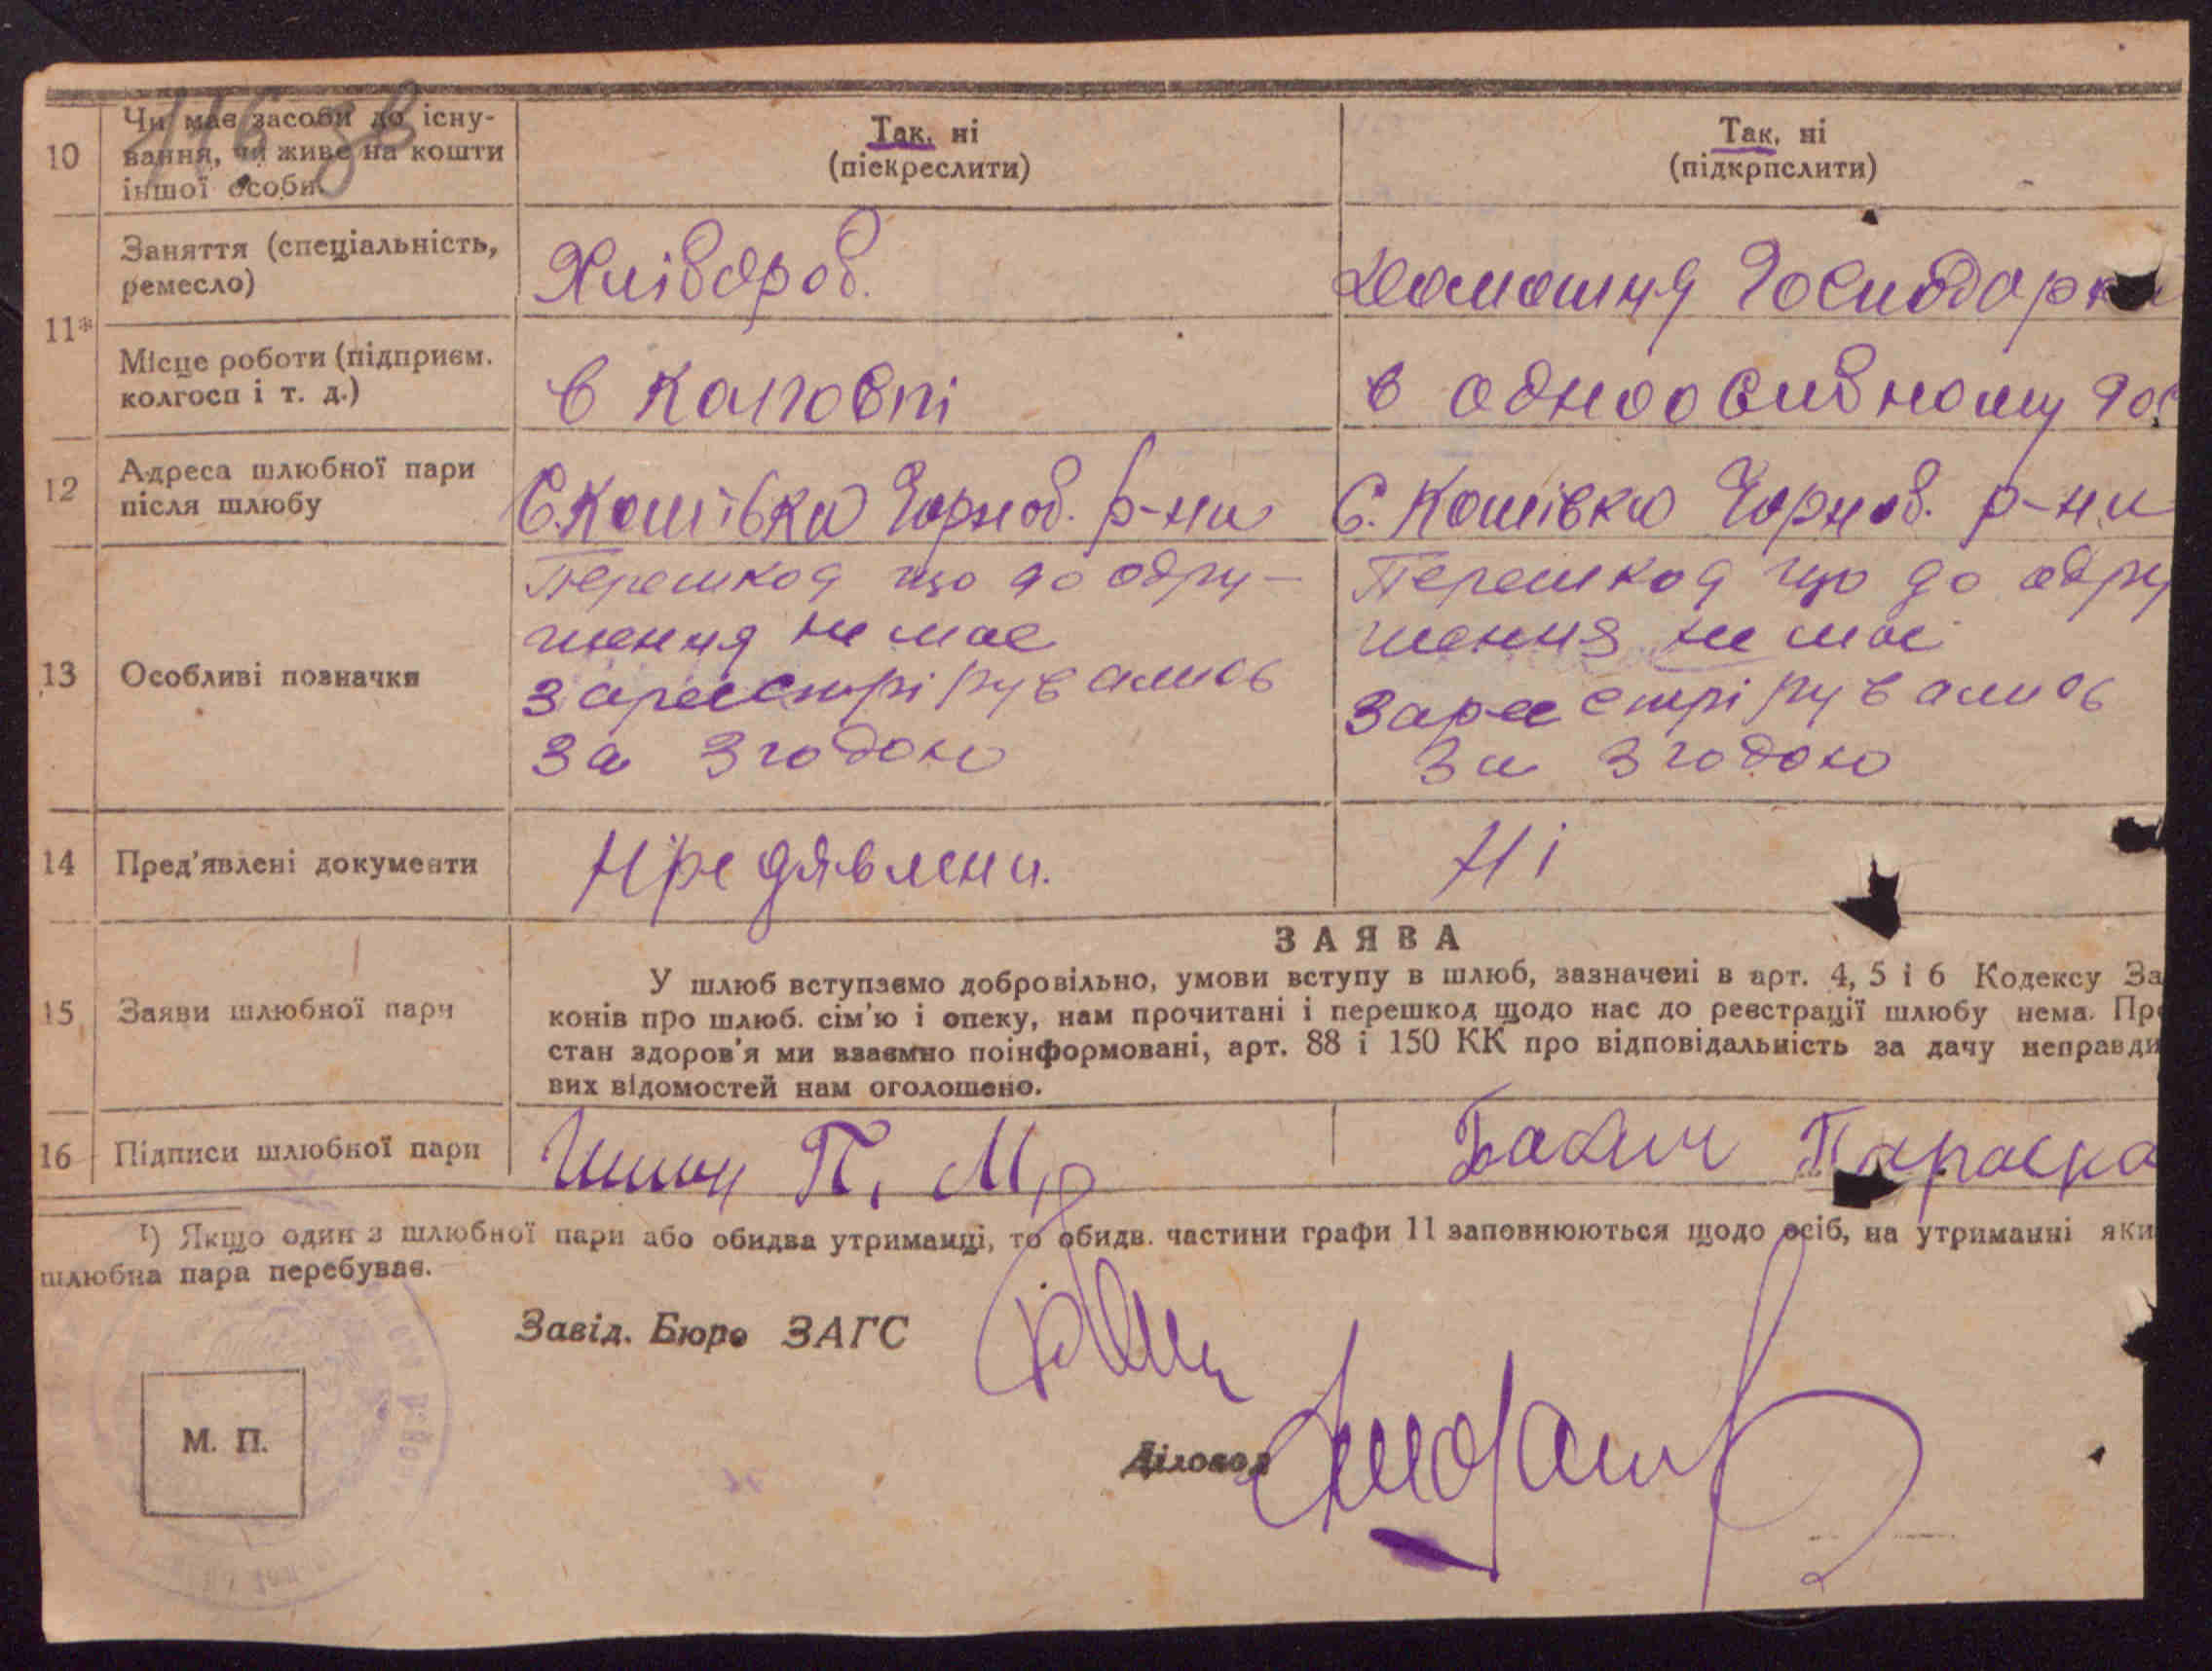 10
Чи має засоби до існу-
вання, чи живе на кошти
іншої особи.
Так, ні
(піекреслити)
Так, ні
(підкрпслити)
11*
Заняття (спеціальність,
ремесло)
Хлібороб.
Домашня Господарка
Місце роботи (підприєм.
колгосп і т. д.)
в колгоспі
в одноосибному гос
12
Адреса шлюбної пари
після шлюбу
С. Кошівка Чорноб. р-на
С. Кошівка Чорноб. р-на
13
Особливі позначки
Перешкод що до одру-
ження не має
зареєстрірувались
за згодою
Перешкод що до одру
ження не має
зареєстрірувались
за згодою
14
Пред'явлені документи
предявлени.
Ні
15
Заяви шлюбної пари
ЗАЯВА
У шлюб вступаємо добровільно, умови вступу в шлюб, зазначені в арт. 4, 5 і 6 Кодексу За
конів про шлюб. сім'ю і опеку, нам прочитані і перешкод щодо нас до реєстрації шлюбу нема. Про
стан здоров'я ми взаємно поінформовані, арт. 88 і 150 КК про відповідальність за дачу неправди
вих відомостей нам оголошено.
16
Підписи шлюбної пари
П. М.
Параска
1) Якщо один з шлюбної пари або обидва утриманці, то обидв. частини графи 11 заповнюються щодо осіб, на утриманні яки
шлюбна пара перебуває.
Завід. Бюро ЗАГС
Діловод
М. П.